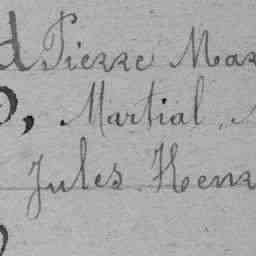 d Pierre Mar
, Martial,
Jules Henr